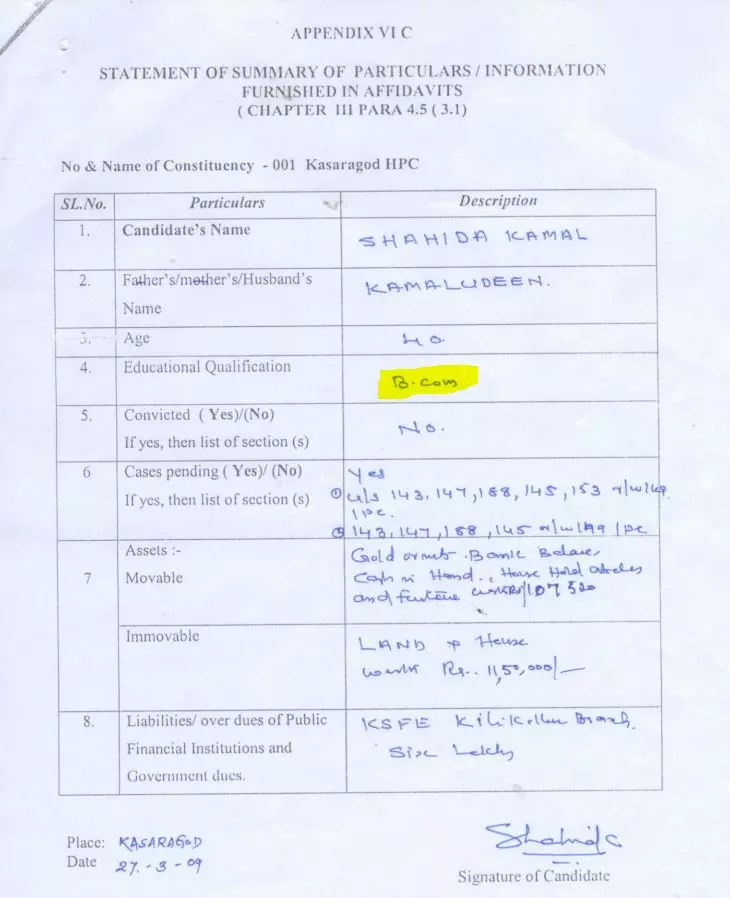 APPENDIX VI C
STATEMENT OF SUMMARY OF PARTICULARS / INFORMATION
FURNISHED IN AFFIDAVITS
( CHAPTER III PARA 4.5 ( 3.1)
No & Name of Constituency - 001 Kasaragod HPC
SL.No. Particulars Description
1. Candidate's Name SHAHIDA KAMAL
2. Father's/mother's/Husband's KAMALUDEEN.
Name
3. Age 40.
4. Educational Qualification B.com
5. Convicted ( Yes)/(No) No.
If yes, then list of section (s)
6 Cases pending ( Yes)/ (No) Yes
If yes, then list of section (s) ① u/s 143, 147, 188, 145, 153 r/w 149
IPC.
② 143, 147, 188, 145 r/w 149 IPC
Assets :- Gold
7 Movable Cash in Hand., House Hold
and 107520
Immovable LAND & House
worth Rs.. 11,50,000/-
8. Liabilities/ over dues of Public KSFE Kilikollur Branch,
Financial Institutions and Six Lakhs
Government dues.
Place: KASARAGOD
Date 27.-3-09
Shahida
Signature of Candidate